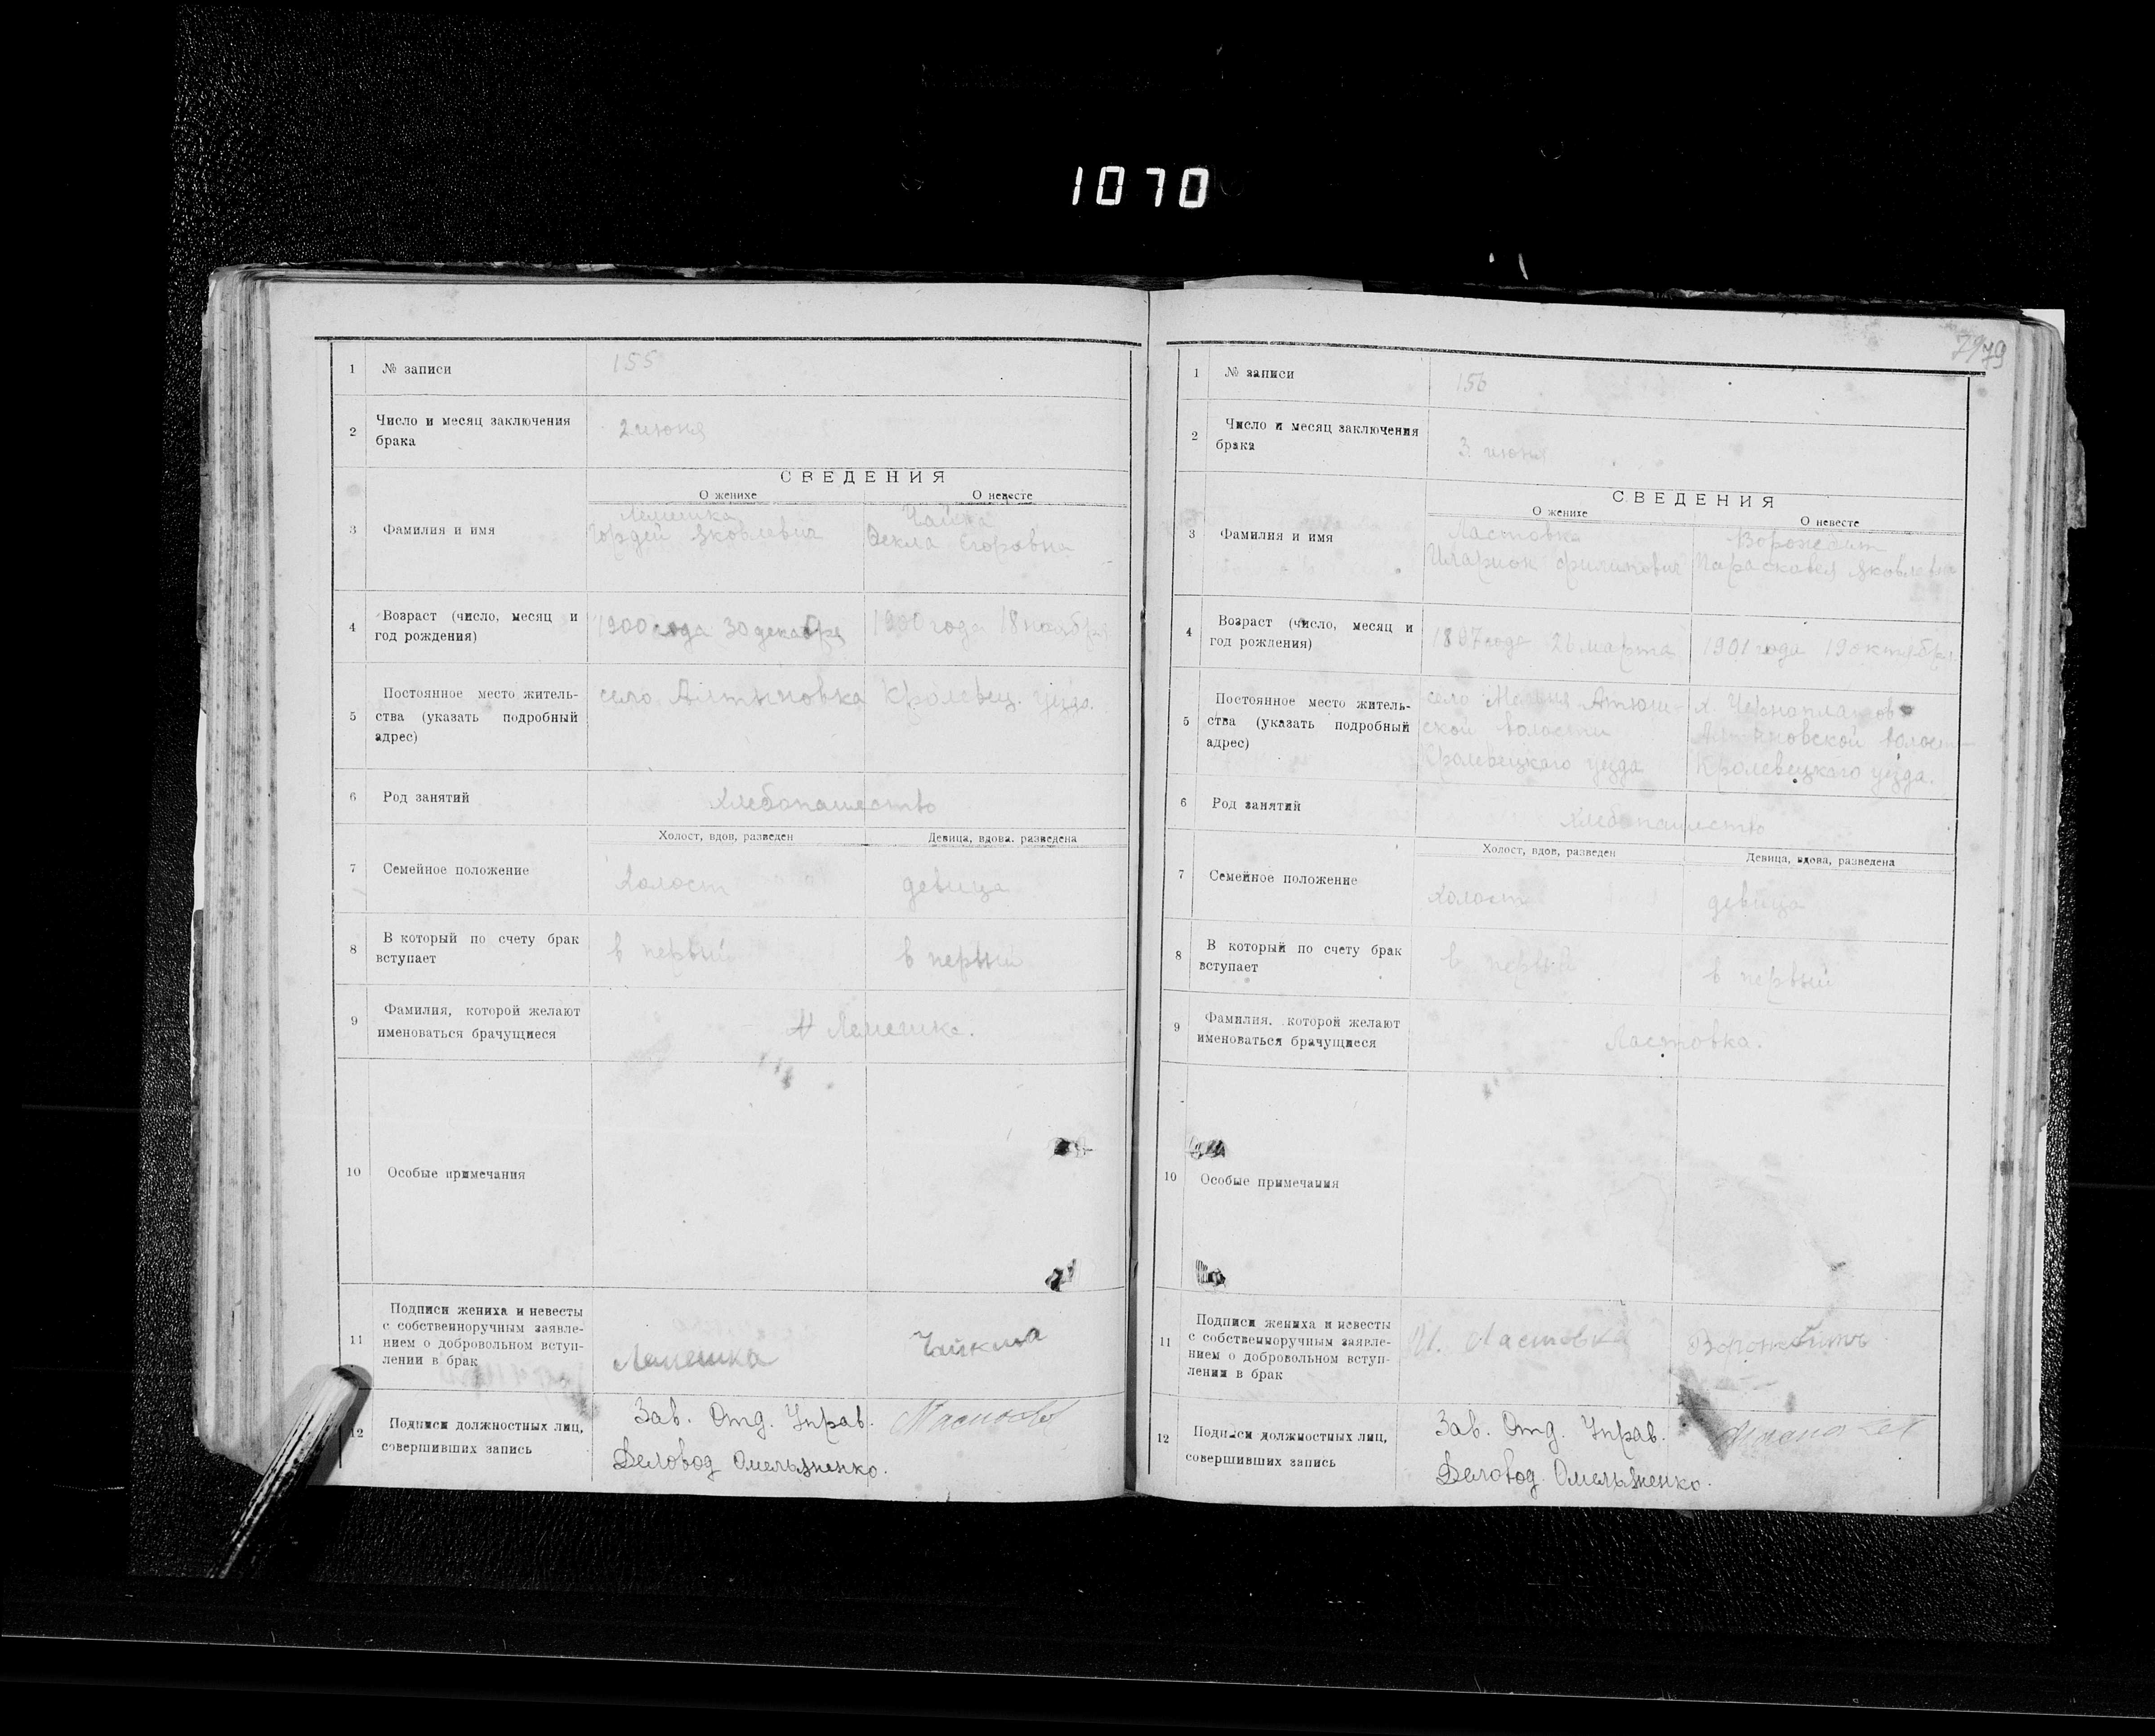 1070
1 № записи 155
2 Число и месяц заключения
брака
2 июня
СВЕДЕНИЯ
О женихе О невесте
3 Фамилия и имя
Лемешка
Гордей Яковлевич
Фекла Егоровна
4 Возраст (число, месяц и
год рождения)
1900 года 30 декабря 1900 года 18 ноября
5 Постоянное место житель-
ства (указать подробный
адрес)
село Алтыновка Кролевец. уезда.
6 Род занятий хлебопашество
Холост, вдов, разведен Девица, вдова, разведена
7 Семейное положение холост девица
8 В который по счету брак
вступает
в первый в первый
9 Фамилия, которой желают
именоваться брачущиеся
Лемешка.
10 Особые примечания
11 Подписи жениха и невесты
с собственноручным заявле-
нием о добровольном вступ-
лении в брак
Лемешка
12 Подписи должностных лиц,
совершивших запись
Зав. Отд. Управ.
Деловод Омельяненко.
79 79
1 № записи 156
2 Число и месяц заключения
брака
3 июня
СВЕДЕНИЯ
О женихе О невесте
3 Фамилия и имя
Ластовка Ворожбит
Иларион Филипович Парасковея Яковлевна
4 Возраст (число, месяц и
год рождения)
1897 года 26 марта 1901 года 19 октября
5 Постоянное место житель-
ства (указать подробный
адрес)
село Атюш-
ской волости
Кролевецкого уезда
х.
Алтыновской волост
Кролевецкого уезда.
6 Род занятий хлебопашество
Холост, вдов, разведен Девица, вдова, разведена
7 Семейное положение холост девица
8 В который по счету брак
вступает
в первый в первый
9 Фамилия, которой желают
именоваться брачущиеся
Ластовка.
10 Особые примечания
11 Подписи жениха и невесты
с собственноручным заявле-
нием о добровольном вступ-
лении в брак
И. Ластовка
12 Подписи должностных лиц,
совершивших запись
Зав. Отд. Управ.
Деловод. Омельяненко.